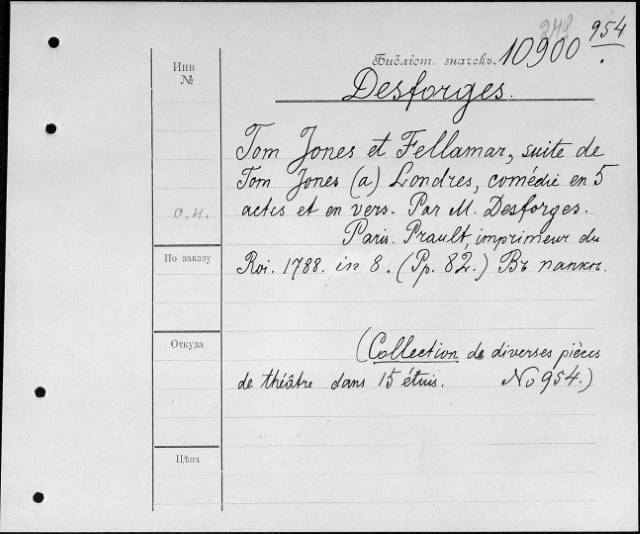 249 954
Библіот. значекъ. 10900
Desforges.
Инв.
№
Tom Jones et Fellamar, suite de
Tom Jones (a) Londres, comédie en 5
actes et en vers. Par M. Desforges.
Paris. Prault, imprimeur du
Roi. 1788. in 8. (Pp. 82.) Въ папкѣ.
По заказу
Откуда
(Collection de diverses pièces
de théâtre dans 15 étuis. No 954.)
Цѣна